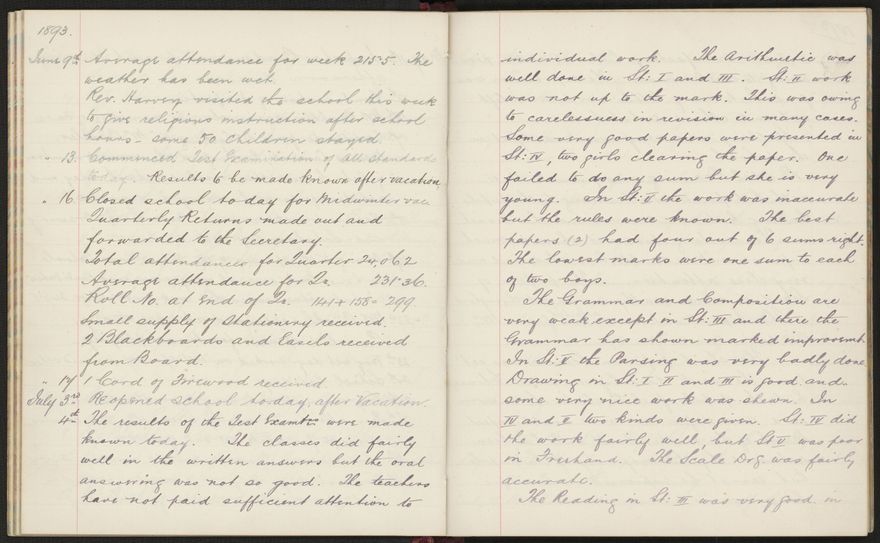 1893.
June 9th Average attendance for week 215.5. The
weather has been wet.
Rev. Harvey visited the school this week
to give religious instruction after school
hours - some 50 children stayed.
" 13. Commenced Test Examination of all standards
today. Results to be made known after vacation
" 16 Closed school to day for Midwinter vac
Quarterly Returns made out and
forwarded to the Secretary.
Total attendances for Quarter 24,062
Average attendance for Qr. 231.36
Roll No. at end of Qr. 141 + 158 = 299
Small supply of Stationery received.
2 Blackboards and Easels received
from Board.
" 17 1 Cord of Firewood received
July 3rd Reopened school today, after Vacation.
4th The results of the Test Examtns were made
known today. The classes did fairly
well in the written answers but the oral
answering was not so good. The teachers
have not paid sufficient attention to
individual work. The Arithmetic was
well done in St: I and III. St: II work
was not up to the mark. This was owing
to carelessness in revision in many cases.
Some very good papers were presented in
St: IV, two girls clearing the paper. One
failed to do any sum but she is very
young. In St: V the work was inaccurate
but the rules were known. The best
papers (2) had four out of 6 sums right.
The lowest marks were one sum to each
of two boys.
The Grammar and Composition are
very weak except in St: III and there the
Grammar has shown marked improvemt.
In St: V the Parsing was very badly done
Drawing in St: I II and III is good and
some very nice work was shewn. In
IV and V two kinds were given. St: IV did
the work fairly well, but St V was poor
in Freehand. The Scale Drg. was fairly
accurate.
The Reading in St: III was very good in